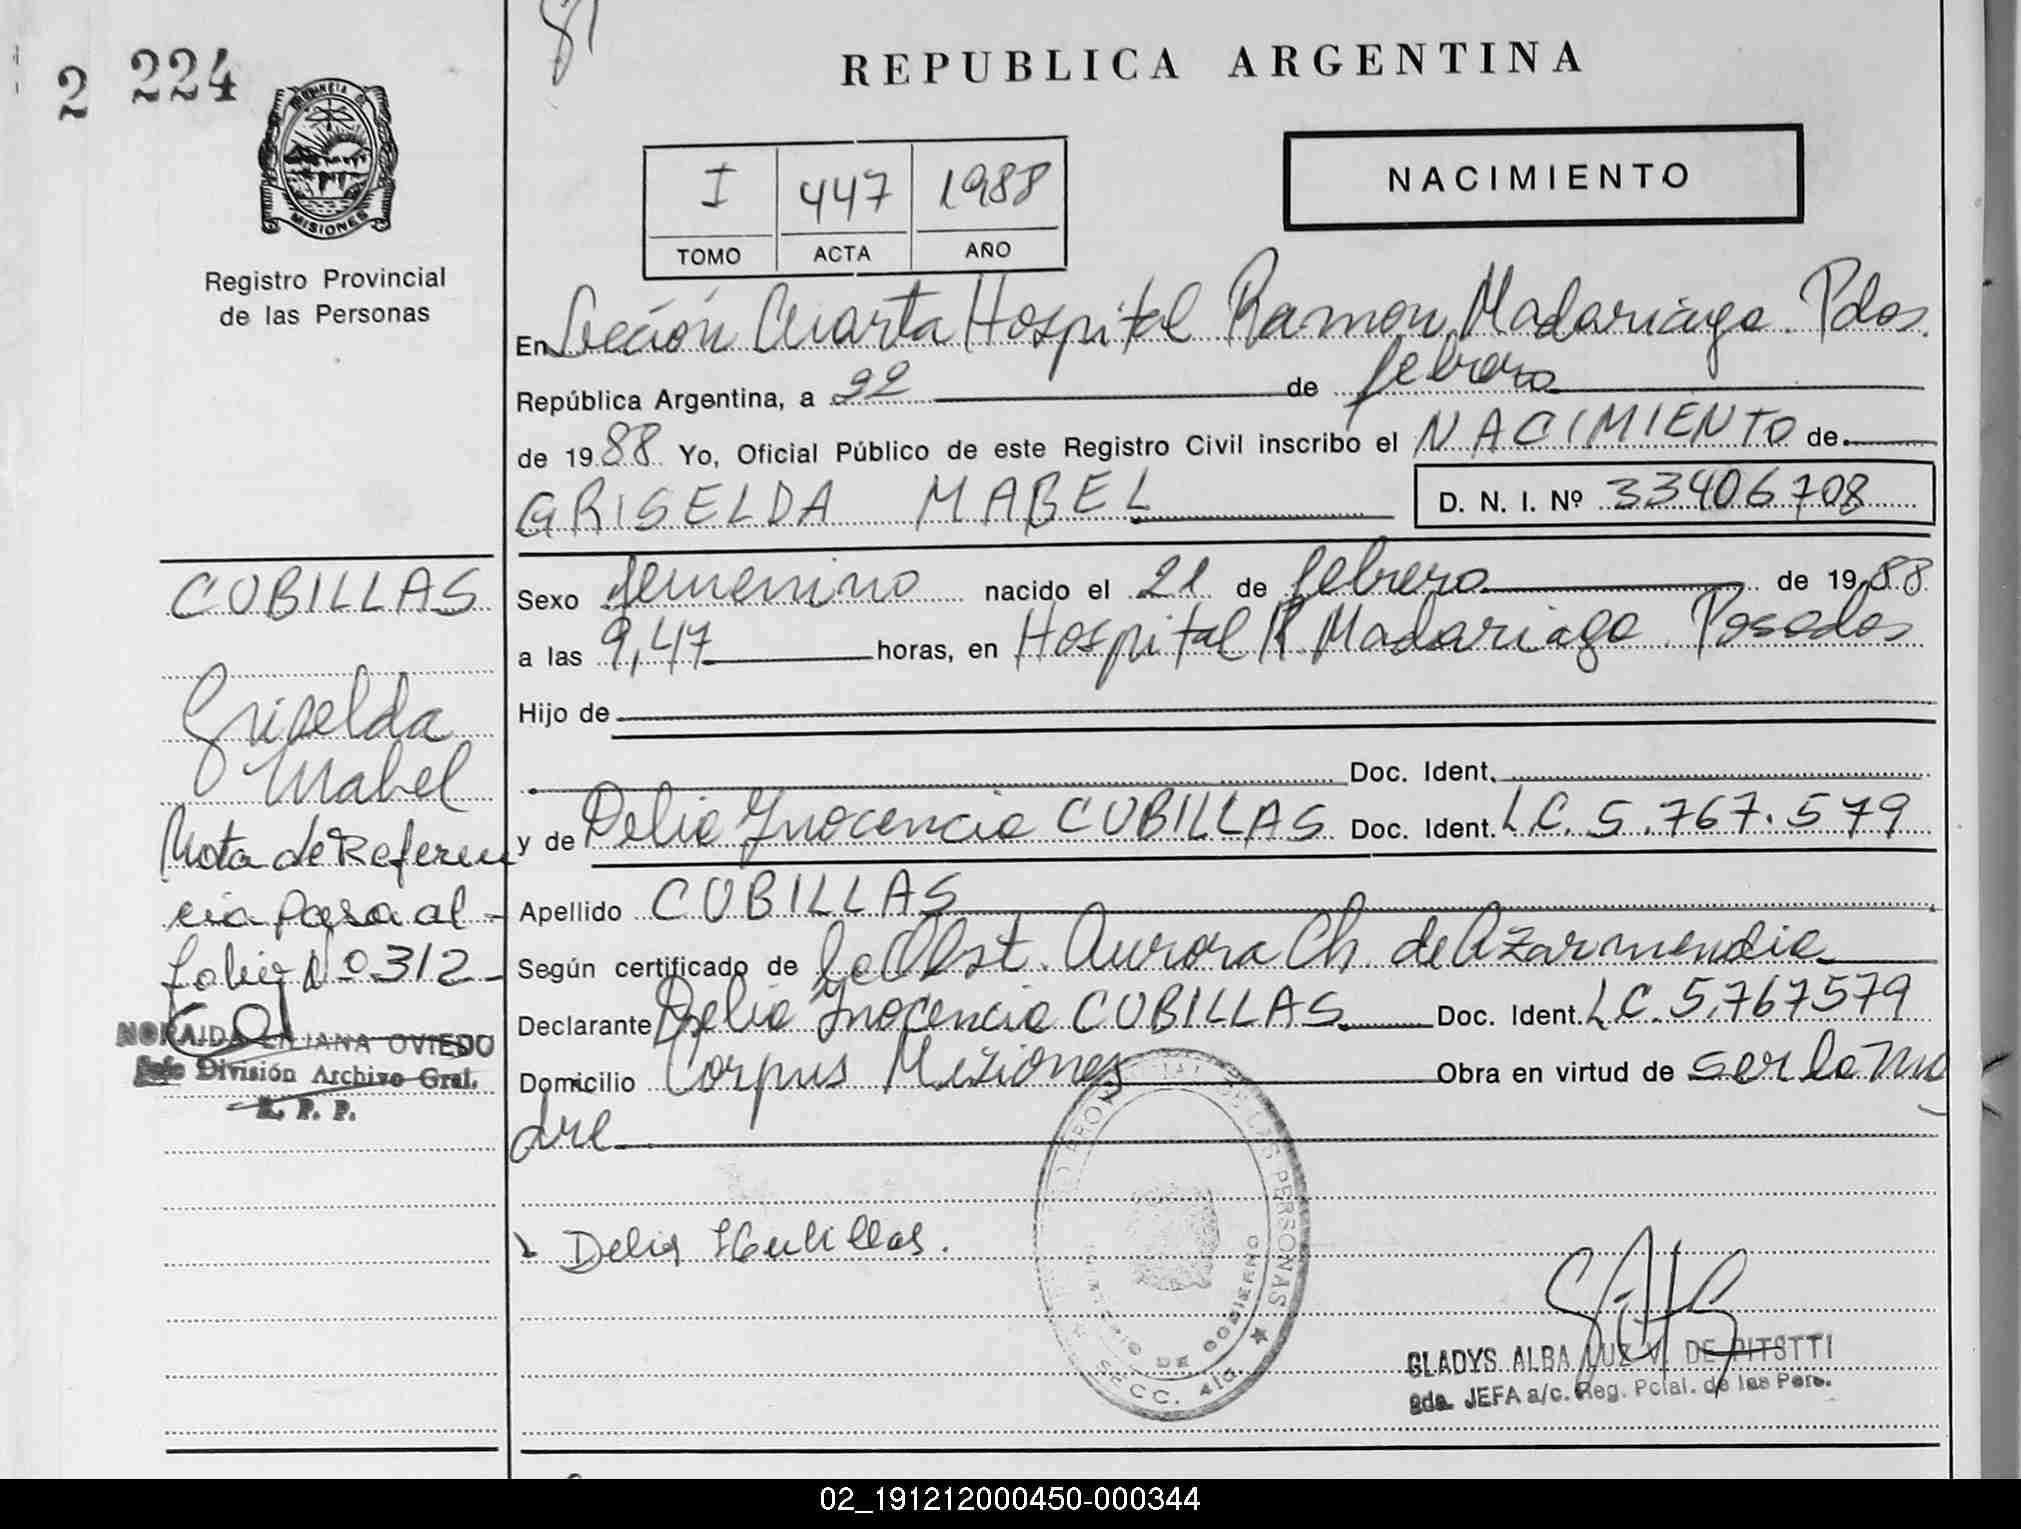 2 224
REPUBLICA ARGENTINA
PROVINCIA DE
MISIONES
Registro Provincial
de las Personas
I 447 1988
TOMO ACTA AÑO
NACIMIENTO
En Sección Cuarta Hospital Ramon Madariaga. Pdas.
República Argentina, a 22 de febrero
de 1988 Yo, Oficial Público de este Registro Civil inscribo el NACIMIENTO de
GRISELDA MABEL D. N. I. Nº 33406708
CUBILLAS
Griselda
Mabel
Nota de Referen
cia pasa al
folio Nº 312
NORAIDA LILIANA OVIEDO
Jefe División Archivo Gral.
R. P. P.
Sexo femenino nacido el 21 de febrero de 1988
a las 9,47 horas, en Hospital R Madariaga. Posadas
Hijo de
Doc. Ident.
y de Delia Ynocencia CUBILLAS Doc. Ident. LC. 5.767.579
Apellido CUBILLAS
Según certificado de la Obst. Aurora Ch. de Azarmendia
Declarante Delia Ynocencia CUBILLAS Doc. Ident. LC. 5.767579
Domicilio Corpus Misiones Obra en virtud de ser la ma
dre
Delia Cubillas.
PROVINCIAL DE LAS PERSONAS
MINISTERIO DE GOBIERNO
SECC. 4ta.
GLADYS ALBA LUZ V. DE PITSTTI
2da. JEFA a/c. Reg. Pcial. de las Pers.
02_191212000450-000344